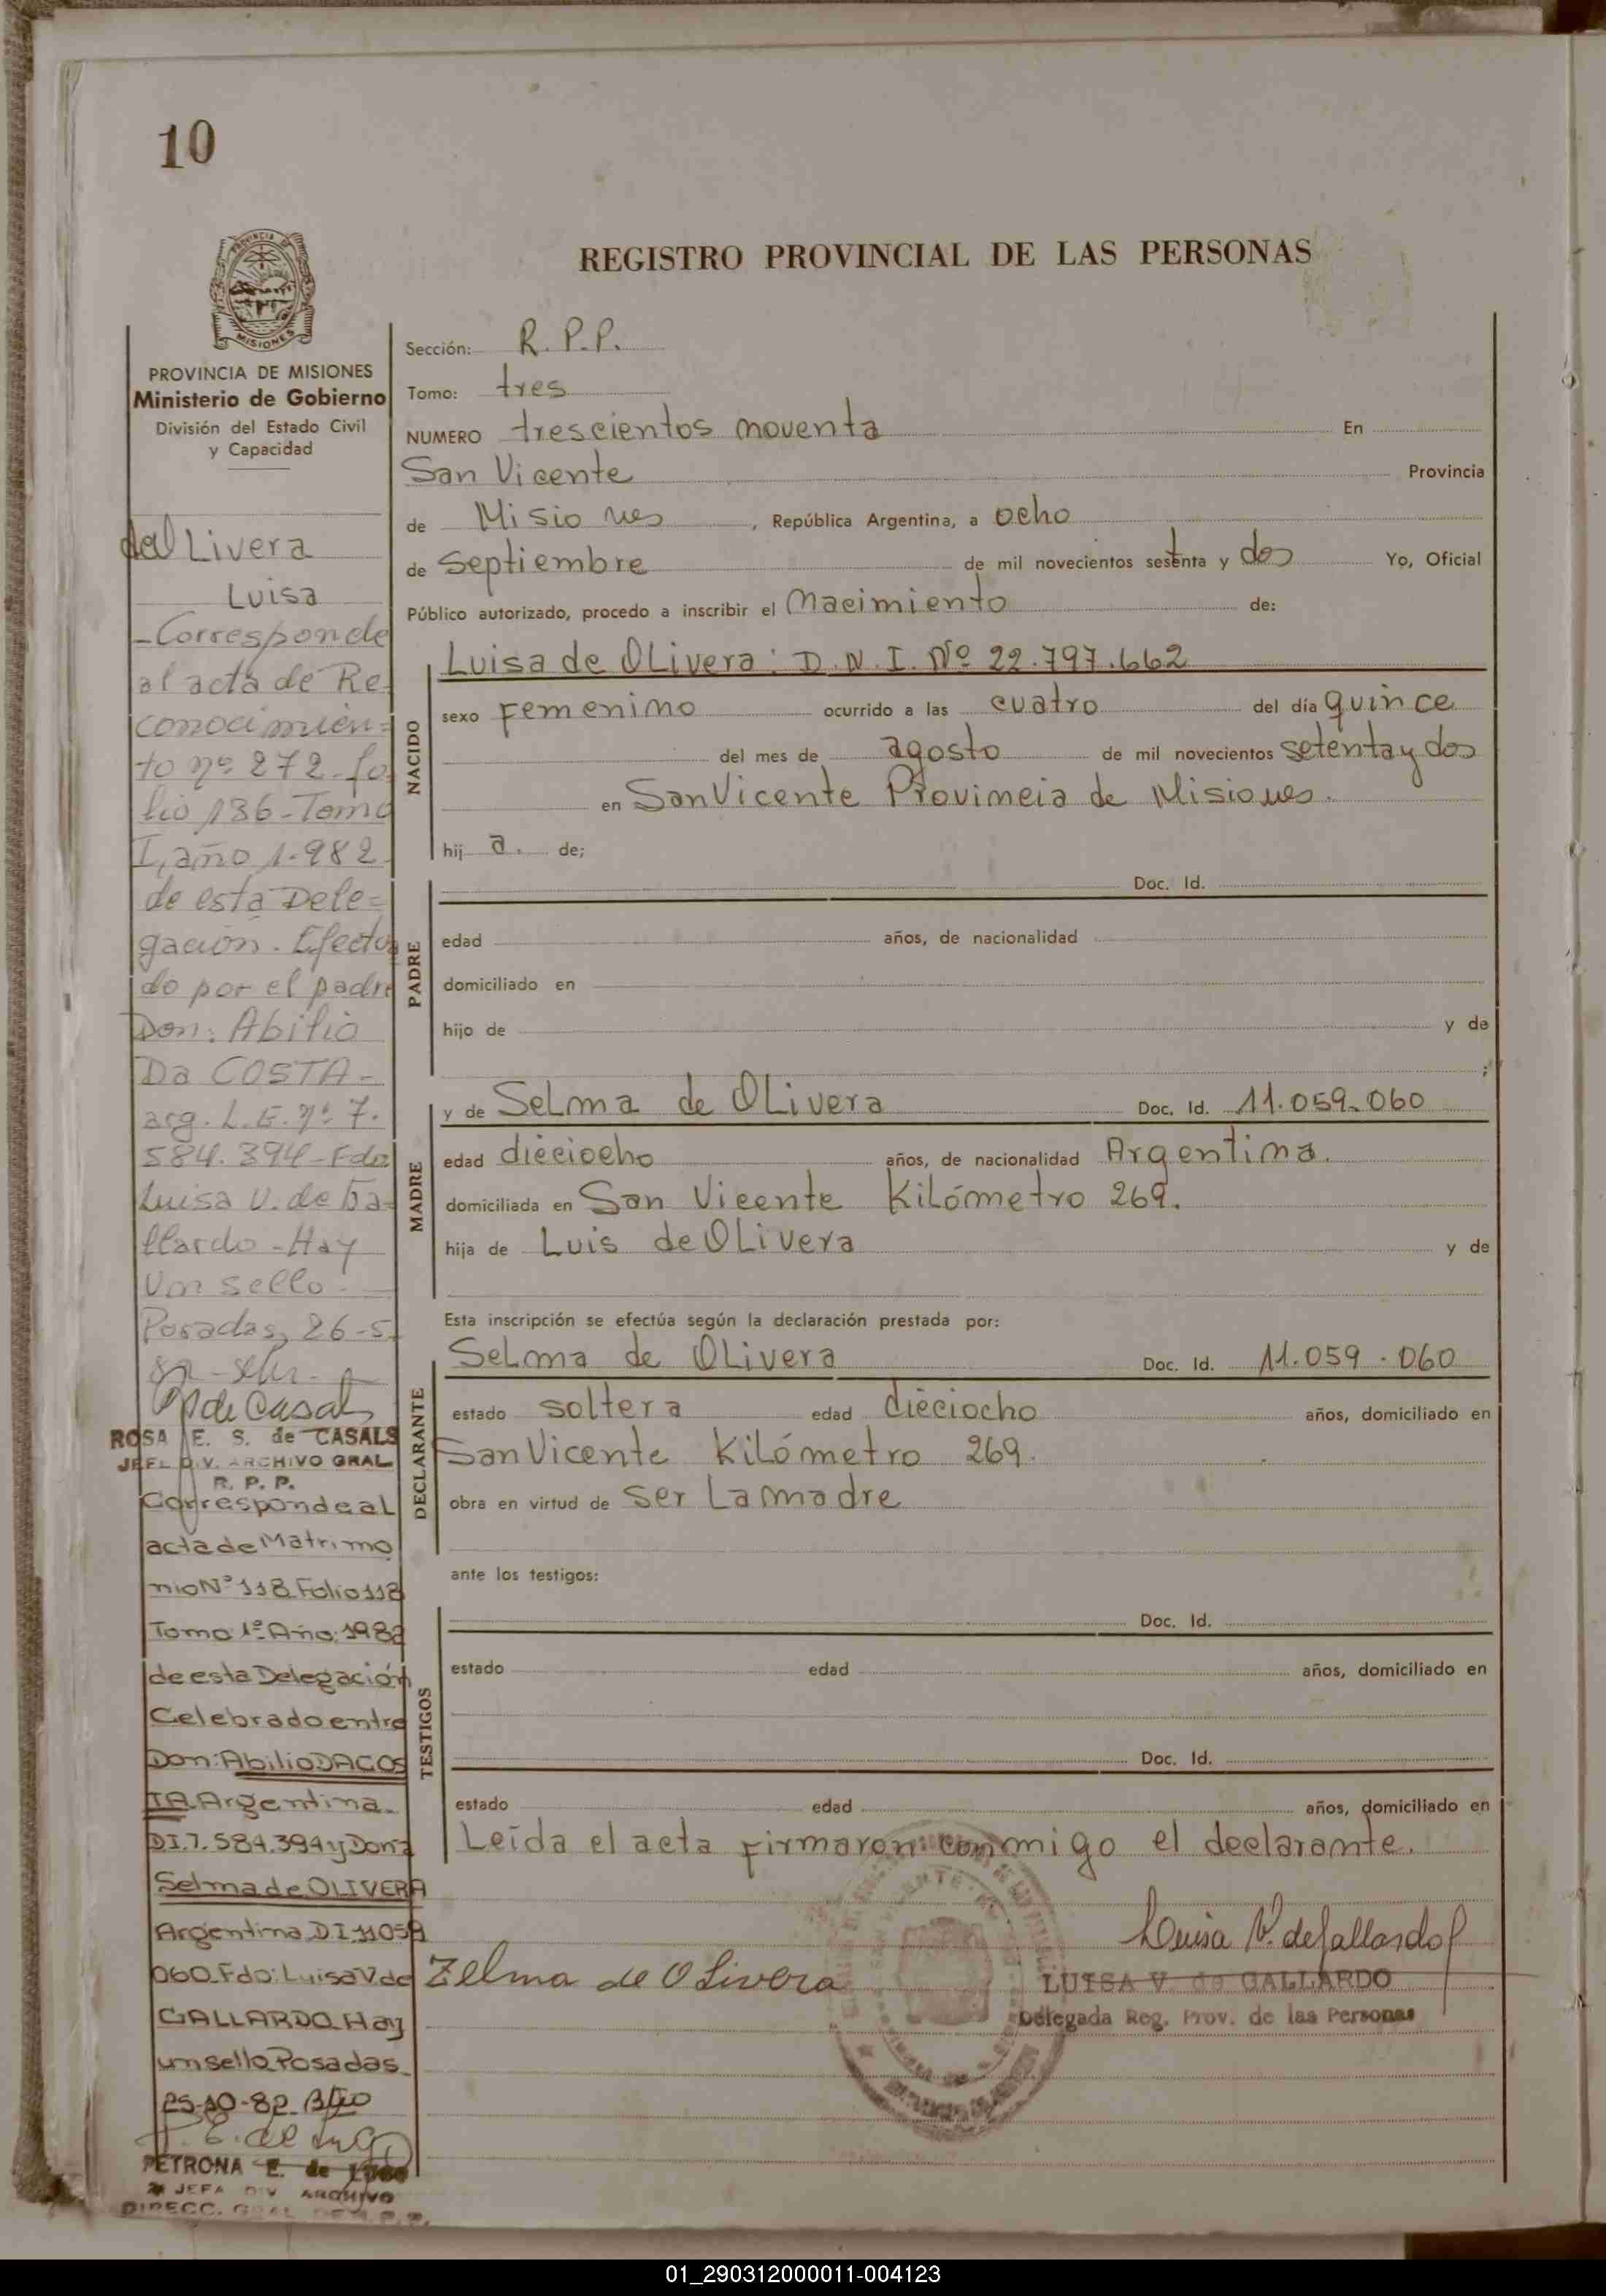 10
PROVINCIA DE
MISIONES
REGISTRO PROVINCIAL DE LAS PERSONAS
PROVINCIA DE MISIONES
Ministerio de Gobierno
División del Estado Civil
y Capacidad
Sección: R. P.P.
Tomo: tres
NUMERO trescientos noventa En
San Vicente Provincia
de Misiones, República Argentina, a ocho
de Septiembre de mil novecientos setenta y dos Yo, Oficial
Público autorizado, procedo a inscribir el Nacimiento de:
NACIDO
Luisa de OLivera: D.N.I. Nº 22.797.662
sexo Femenino ocurrido a las cuatro del día quince
del mes de agosto de mil novecientos setenta y dos
en San Vicente Provincia de Misiones.
hij a. de;
PADRE
Doc. Id.
edad años, de nacionalidad
domiciliado en
hijo de y de
;
MADRE
y de SeLma de OLivera Doc. Id. 11.059.060
edad dieciocho años, de nacionalidad Argentina.
domiciliada en San Vicente Kilómetro 269.
hija de Luis de OLivera y de
Esta inscripción se efectúa según la declaración prestada por:
DECLARANTE
SeLma de OLivera Doc. Id. 11.059.060
estado soltera edad dieciocho años, domiciliado en
San Vicente Kilómetro 269.
obra en virtud de ser La madre
ante los testigos:
TESTIGOS
Doc. Id.
estado edad años, domiciliado en
Doc. Id.
estado edad años, domiciliado en
Leída el acta firmaron: conmigo el declarante.
Luisa V. de Gallardo
Zelma de OLivera
LUISA V. de GALLARDO
Delegada Reg. Prov. de las Personas
Livera
Luisa
-Corresponde
al acta de Re-
conocimien=
to nº 272-fo
lio 136-Tomo
I, año 1.982
de esta Dele=
gación. Efectua
do por el padre
Don: Abilio
Da COSTA-
arg. L.E. nº 7.
584.394-Fdo
Luisa V. de Ga-
llardo-Hay
un sello.
Posadas, 26-5-
de Casals
ROSA E. S. de CASALS
JEFE DIV. ARCHIVO GRAL
R. P. P.
Corresponde aL
acta de Matrimo
nio Nº 118 Folio 118
Tomo 1º Año: 1982
de esta Delegación
Celebrado entre
Don: Abilio DACOS
TA Argentina.
D.I. 7.584.394 y Doña
Selma de OLIVERA
Argentina D.I. 11059
060 Fdo: Luisa V de
GALLARDO Hay
un sello Posadas
25-10-82
PETRONA E. de
JEFA DIV ARCHIVO
DIRECC. GRAL DEL R.P.P.
01_290312000011-004123